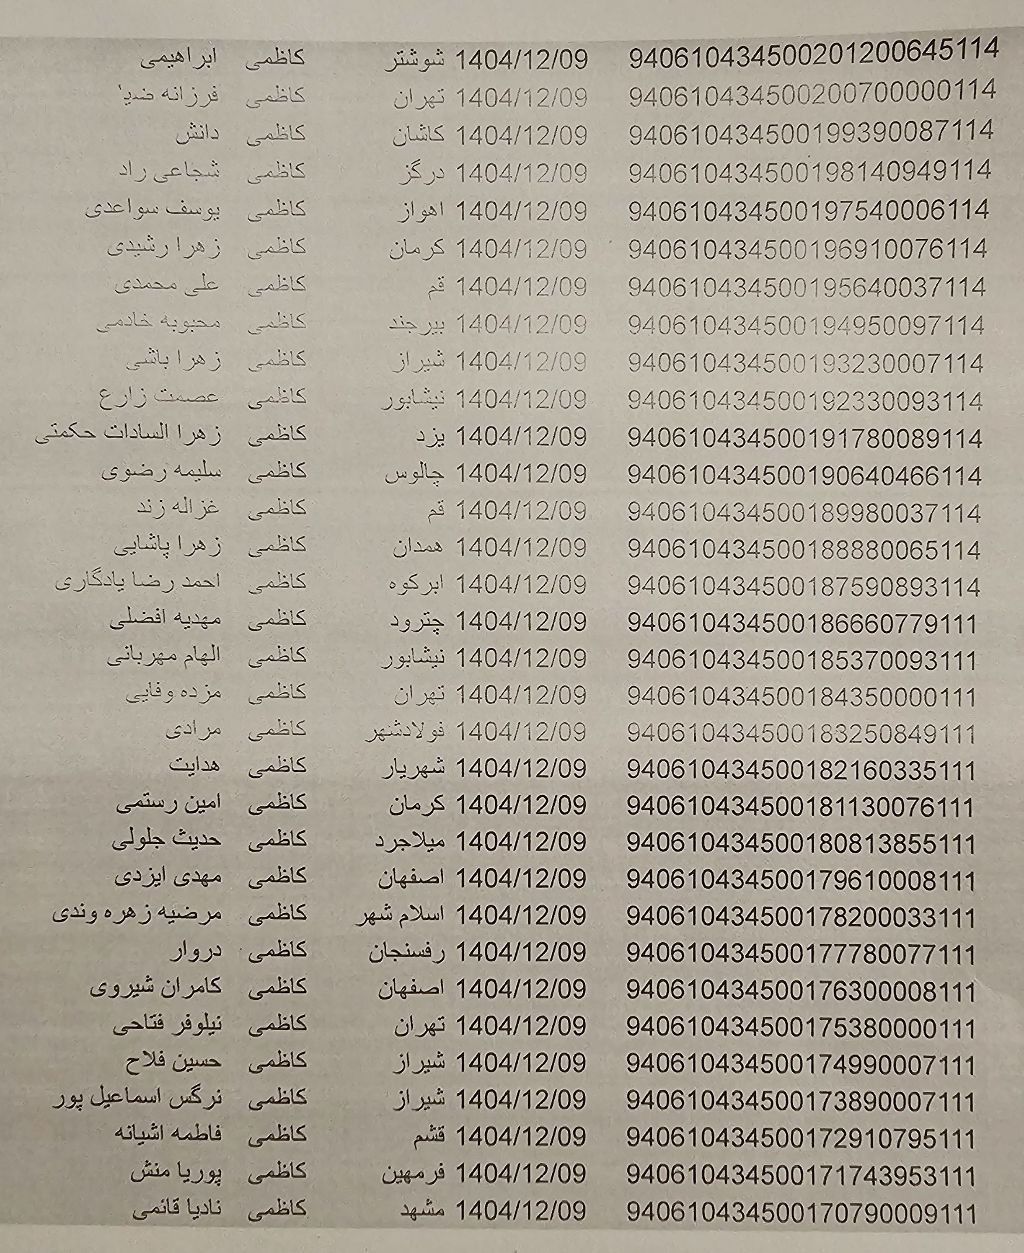 940610434500201200645114 1404/12/09 شوشتر کاظمی ابراهیمی
940610434500200700000114 1404/12/09 تهران کاظمی فرزانه
940610434500199390087114 1404/12/09 کاشان کاظمی دانش
940610434500198140949114 1404/12/09 درگز کاظمی شجاعی راد
940610434500197540006114 1404/12/09 اهواز کاظمی یوسف سواعدی
940610434500196910076114 1404/12/09 کرمان کاظمی زهرا رشیدی
940610434500195640037114 1404/12/09 قم کاظمی علی محمدی
940610434500194950097114 1404/12/09 بیرجند کاظمی محبوبه خادمی
940610434500193230007114 1404/12/09 شیراز کاظمی زهرا باشی
940610434500192330093114 1404/12/09 نیشابور کاظمی عصمت زارع
940610434500191780089114 1404/12/09 یزد کاظمی زهرا السادات حکمتی
940610434500190640466114 1404/12/09 چالوس کاظمی سلیمه رضوی
940610434500189980037114 1404/12/09 قم کاظمی غزاله زند
940610434500188880065114 1404/12/09 همدان کاظمی زهرا پاشایی
940610434500187590893114 1404/12/09 ابرکوه کاظمی احمد رضا یادگاری
940610434500186660779111 1404/12/09 چترود کاظمی مهدیه افضلی
940610434500185370093111 1404/12/09 نیشابور کاظمی الهام مهربانی
940610434500184350000111 1404/12/09 تهران کاظمی مژده وفایی
940610434500183250849111 1404/12/09 فولادشهر کاظمی مرادی
940610434500182160335111 1404/12/09 شهریار کاظمی هدایت
940610434500181130076111 1404/12/09 کرمان کاظمی امین رستمی
940610434500180813855111 1404/12/09 میلاجرد کاظمی حدیث جلولی
940610434500179610008111 1404/12/09 اصفهان کاظمی مهدی ایزدی
940610434500178200033111 1404/12/09 اسلام شهر کاظمی مرضیه زهره وندی
940610434500177780077111 1404/12/09 رفسنجان کاظمی دروار
940610434500176300008111 1404/12/09 اصفهان کاظمی کامران شیروی
940610434500175380000111 1404/12/09 تهران کاظمی نیلوفر فتاحی
940610434500174990007111 1404/12/09 شیراز کاظمی حسین فلاح
940610434500173890007111 1404/12/09 شیراز کاظمی نرگس اسماعیل پور
940610434500172910795111 1404/12/09 قشم کاظمی فاطمه اشیانه
940610434500171743953111 1404/12/09 فرمهین کاظمی پوریا منش
940610434500170790009111 1404/12/09 مشهد کاظمی نادیا قائمی